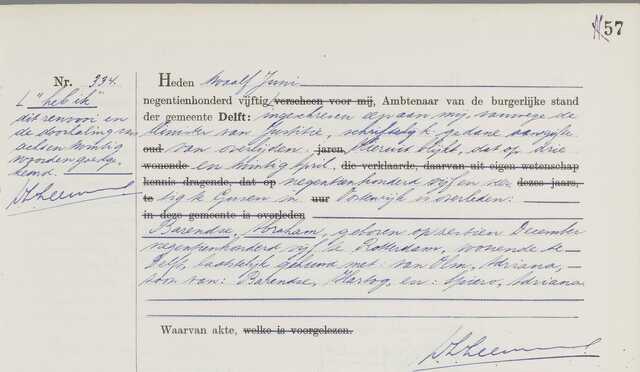 57
Nr. 334.
Heden twaalf Juni
negentienhonderd vijftig, verscheen voor mij, Ambtenaar van de burgerlijke stand
der gemeente Delft: ingeschreven de aan mij, vanwege de
Minister van Justitie, schriftelijk gedane aangifte
oud van overlijden. jaren, Hieruit blijkt, dat op drie
wonende en twintig April, die verklaarde, daarvan uit eigen wetenschap
kennis dragende, dat op negentienhonderd vijf en veer deezes jaars,
te tig te uur in overleden:
in deze gemeente is overleden
Barendse, Abraham, geboren op dertien December
negentienhonderd vijf te Rotterdam, wonende te
Delft, laatstelijk gehuwd met: van Olm, Adriana,
zoon van: Barendse, Hartog, en: Spiero, Adriana
Waarvan akte, welke is voorgelezen.
"heb ik"
dit renvooi en
de doorhaling van
achten twintig
woorden goedge-
keurd.